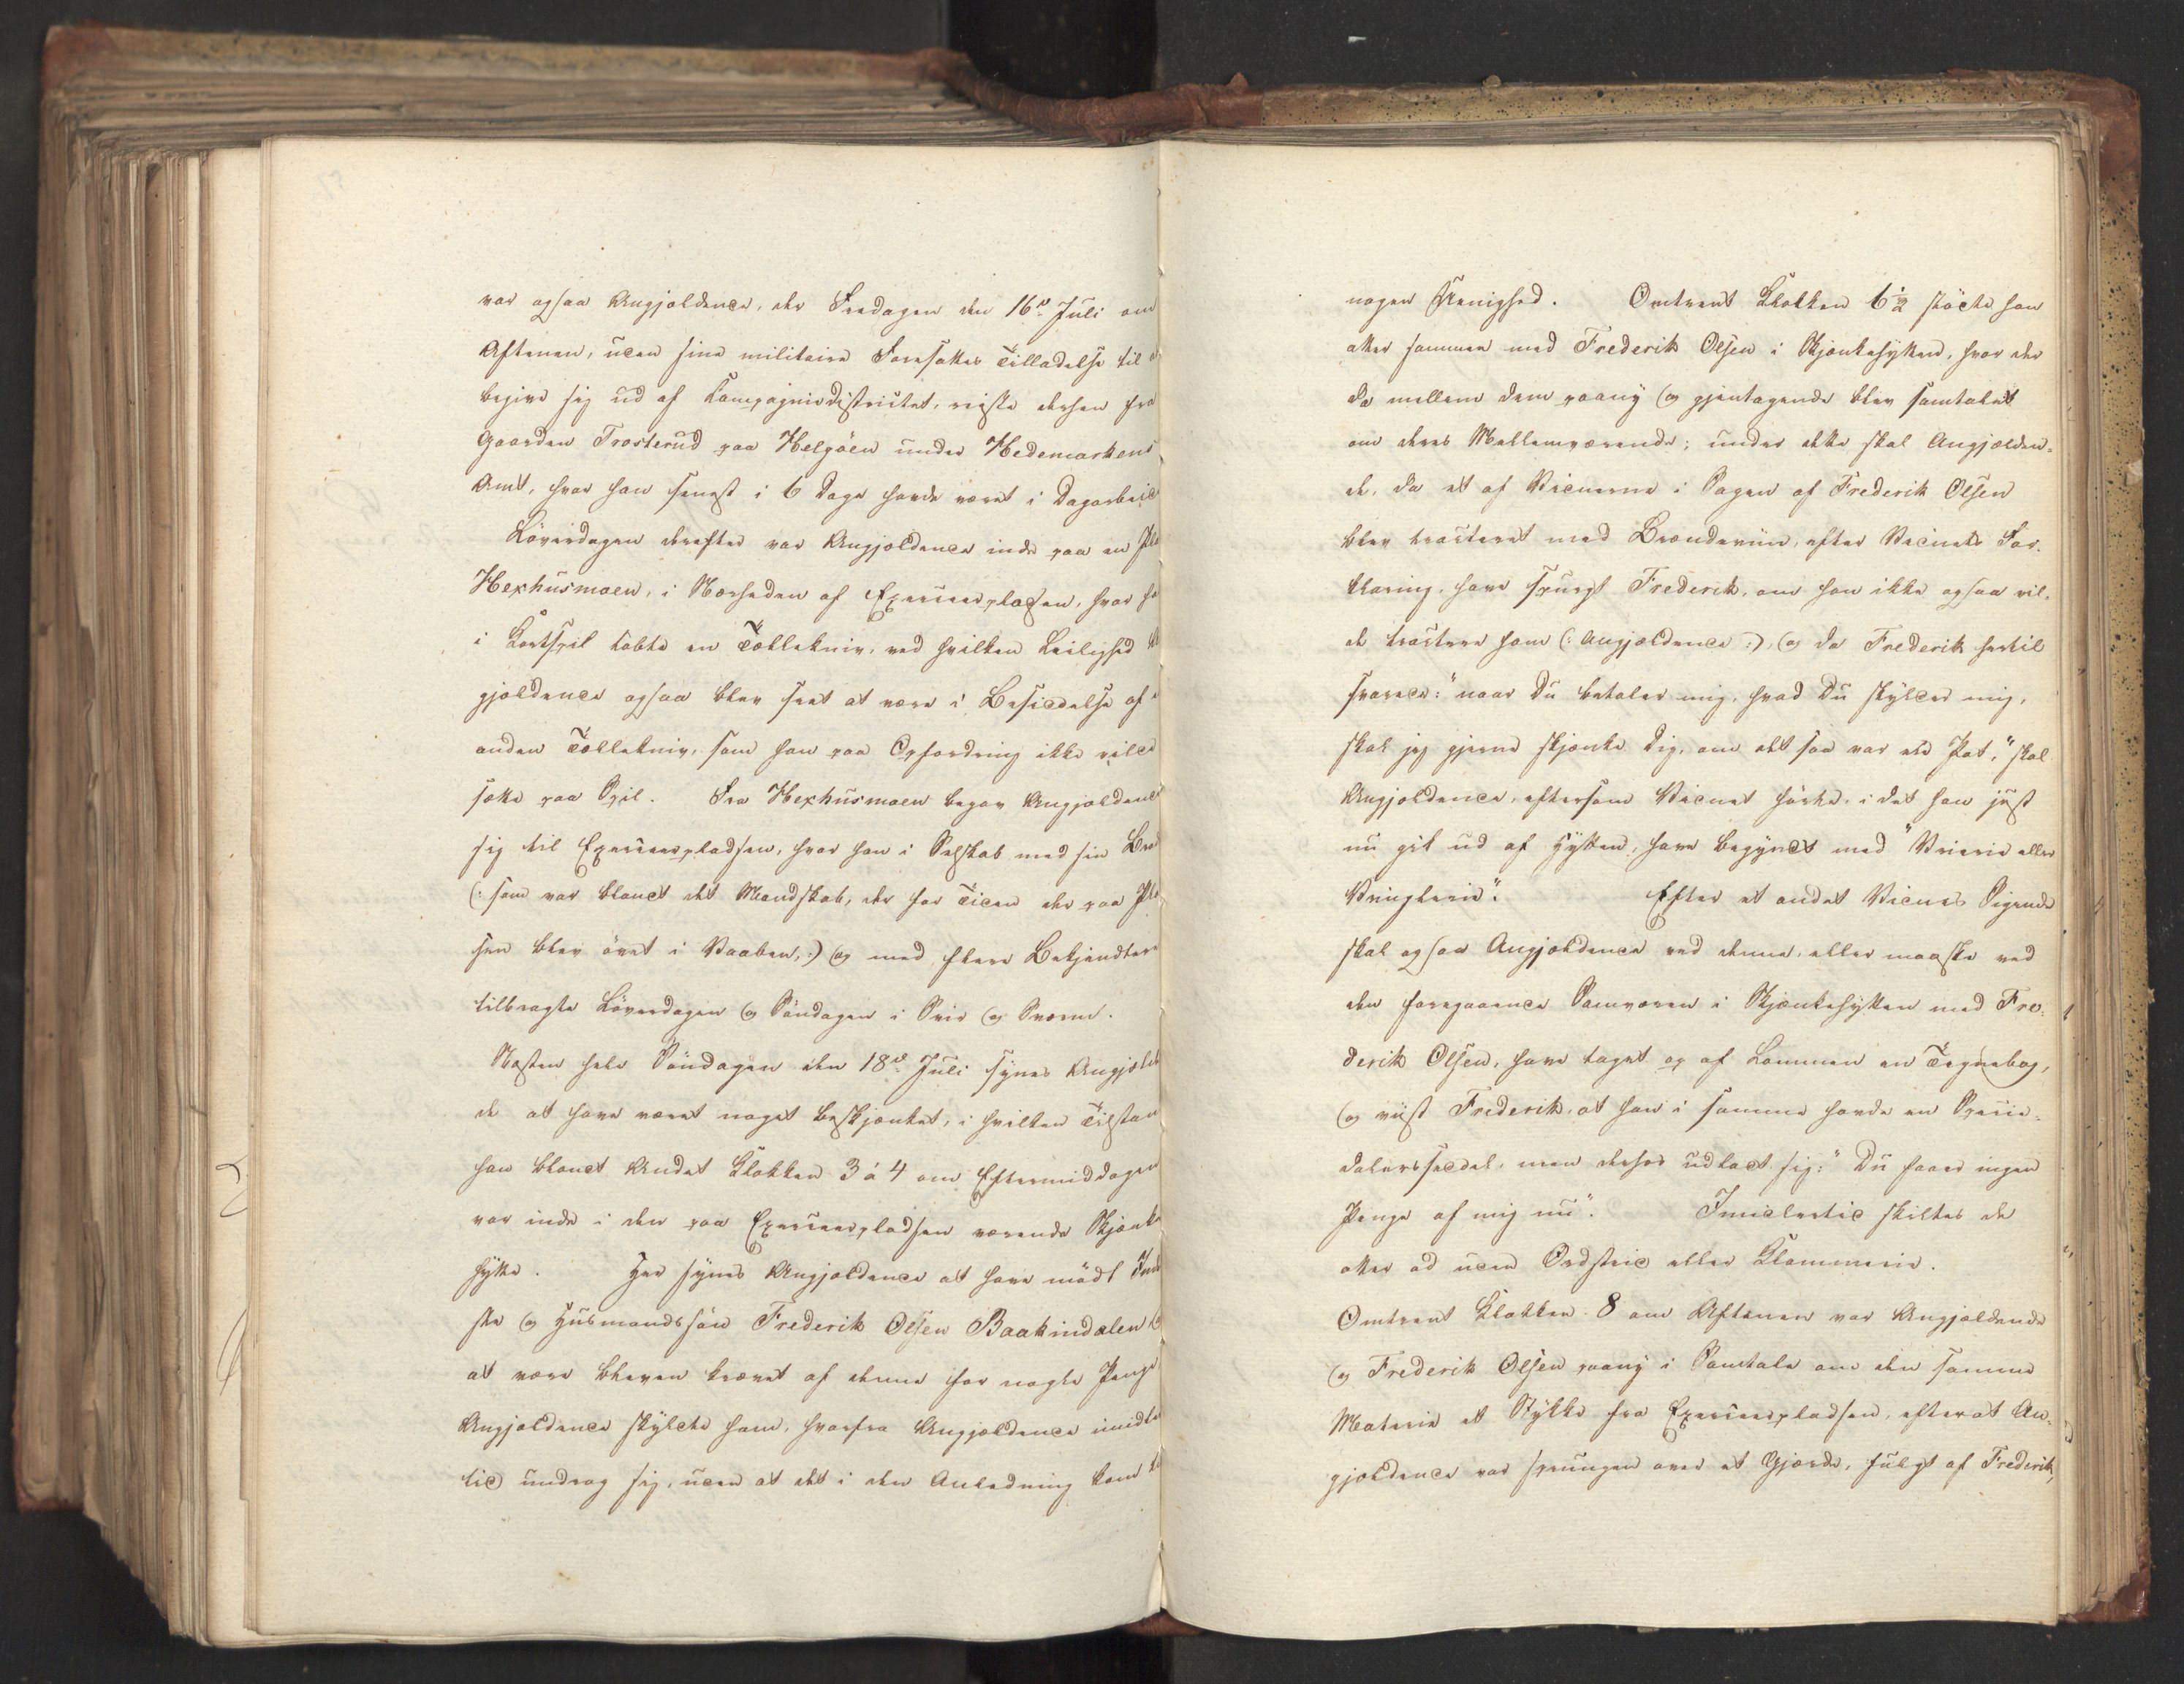 var ogsaa Angjeldende, der Fredagen den 16de Juli om
Aftenen, uden sine militaire Foresattes Tilladelse til
begive sig ud af Kompagniedistrictet, reiste derhen fra
Gaarden Trosterud paa Helgöen under Hedemarkens
Amt, hvor han senest i 6 Dage havde været i Dagarbeid
Löverdagen derefter var Angjeldende inde paa en
Hexhusmoen, i Nærheden af Exerceerpladsen, hvor
i Kortspil tabte en Tollekniv, ved hvilken Leilighed
gjeldende ogsaa blev seet at være i Besiddelse af
anden Tollekniv, som han paa Opfordring ikke vilde
sætte paa Spil. Fra Hexhusmoen begav Angjeldende
sig til Exerceerpladsen, hvor han i Selskab med sin
(: som var blandt det Mandskab, der for Tiden der paa
sen blev övet i Vaaben, :) og med flere Bekjendtere
tilbragte Löverdagen og Söndagen i Sviir og Sværm.
Næsten hele Söndagen den 18de Juli synes Angjelden
de at have været noget beskjænket, i hvilken Tilstan
han blandt Andet Klokken 3 à 4 om Eftermiddagen
var inde i den paa Exerceerpladsen værende Skjænke
hytte. Her synes Angjeldende at have mödt
ste og Husmandssön Frederik Olsen Baakindalen
at være bleven krævet af denne for nogle Penge
Angjeldende skyldte ham, hvorfra Angjeldende imidler
tid undrog sig, uden at det i den Anledning kom
nogen Uenighed. Omtrent Klokken 6½ stödte han
atter sammen med Frederik Olsen i Skjænkehytten, hvor der
da mellem dem paany og gjentagende blev samtalet
om deres Mellemværende; under dette skal Angjelden-
de, da et af Vidnerne i Sagen af Frederik Olsen
blev tracteret med Brændeviin, efter Vidnets For-
klaring, have spurgt Frederik, om han ikke ogsaa vil-
de tractere ham (: Angjeldende :), og da Frederik hertil
svarede: "naar Du betaler mig, hvad Du skylder mig,
skal jeg gjerne skjænke Dig, om det saa var en Pot," skal
Angjeldende, eftersom Vidnet hörte, i det han just
nu gik ud af Hytten, have begyndt med "Vrierie eller
Vringlerie". Efter et andet Vidnes Sigende
skal ogsaa Angjeldende ved denne, eller maaske ved
den foregaaende Samværen i Skjænkehytten med Fre-
derik Olsen, have taget op af Lommen en Tegnebog,
og viist Frederik, at han i samme havde en Specie-
dalersseddel, men derhos udladt sig: "Du faaer ingen
Penge af mig nu". Imidlertid skiltes de
atter ad uden Ordstrid eller Klammerie.
Omtrent Klokken 8 om Aftenen var Angjeldende
og Frederik Olsen paany i Samtale om den samme
Materie et Stykke fra Exerceerpladsen, efterat An-
gjeldende var sprungen over et Gjerde, fulgt af Frederik,